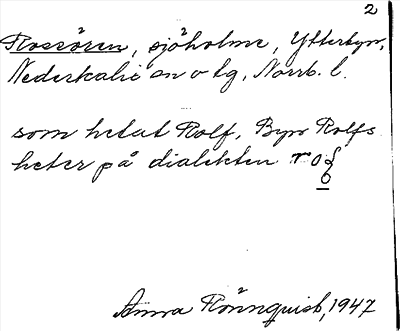 2
Rossören, sjöholme, Ytterbyn,
Nederkalix sn o tg, Norrb. l.
som hetat Rolf, Byn Rolfs
heter på dialekten
Anna Rönnquist, 1947